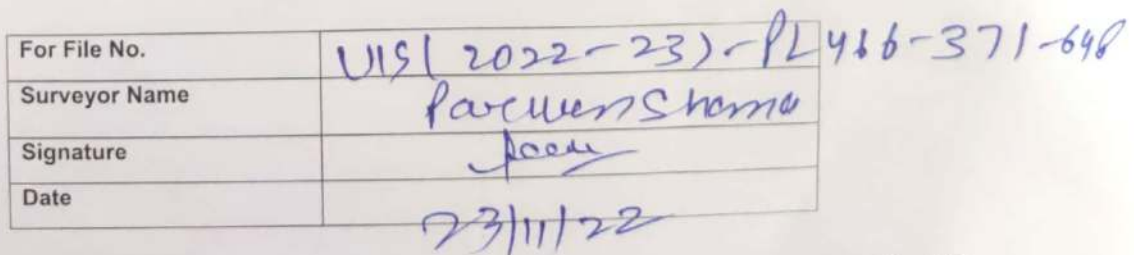 For File No. UIS(2022-23)-PL466-371-648
Surveyor Name Parveen Sharma
Signature
Date 23/11/22